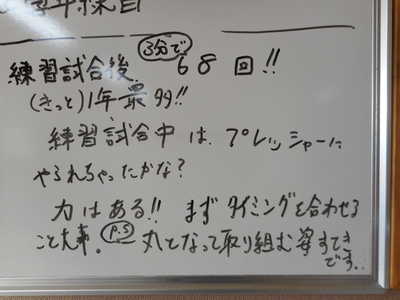 練習
練習試合後 3分で 68回!!
(きっと)1年最多!!
練習試合中は、プレッシャーに
やられちゃったかな?
力はある!! まずタイミングを合わせる
こと大事。P.S 丸となって取り組む姿すてき
です。